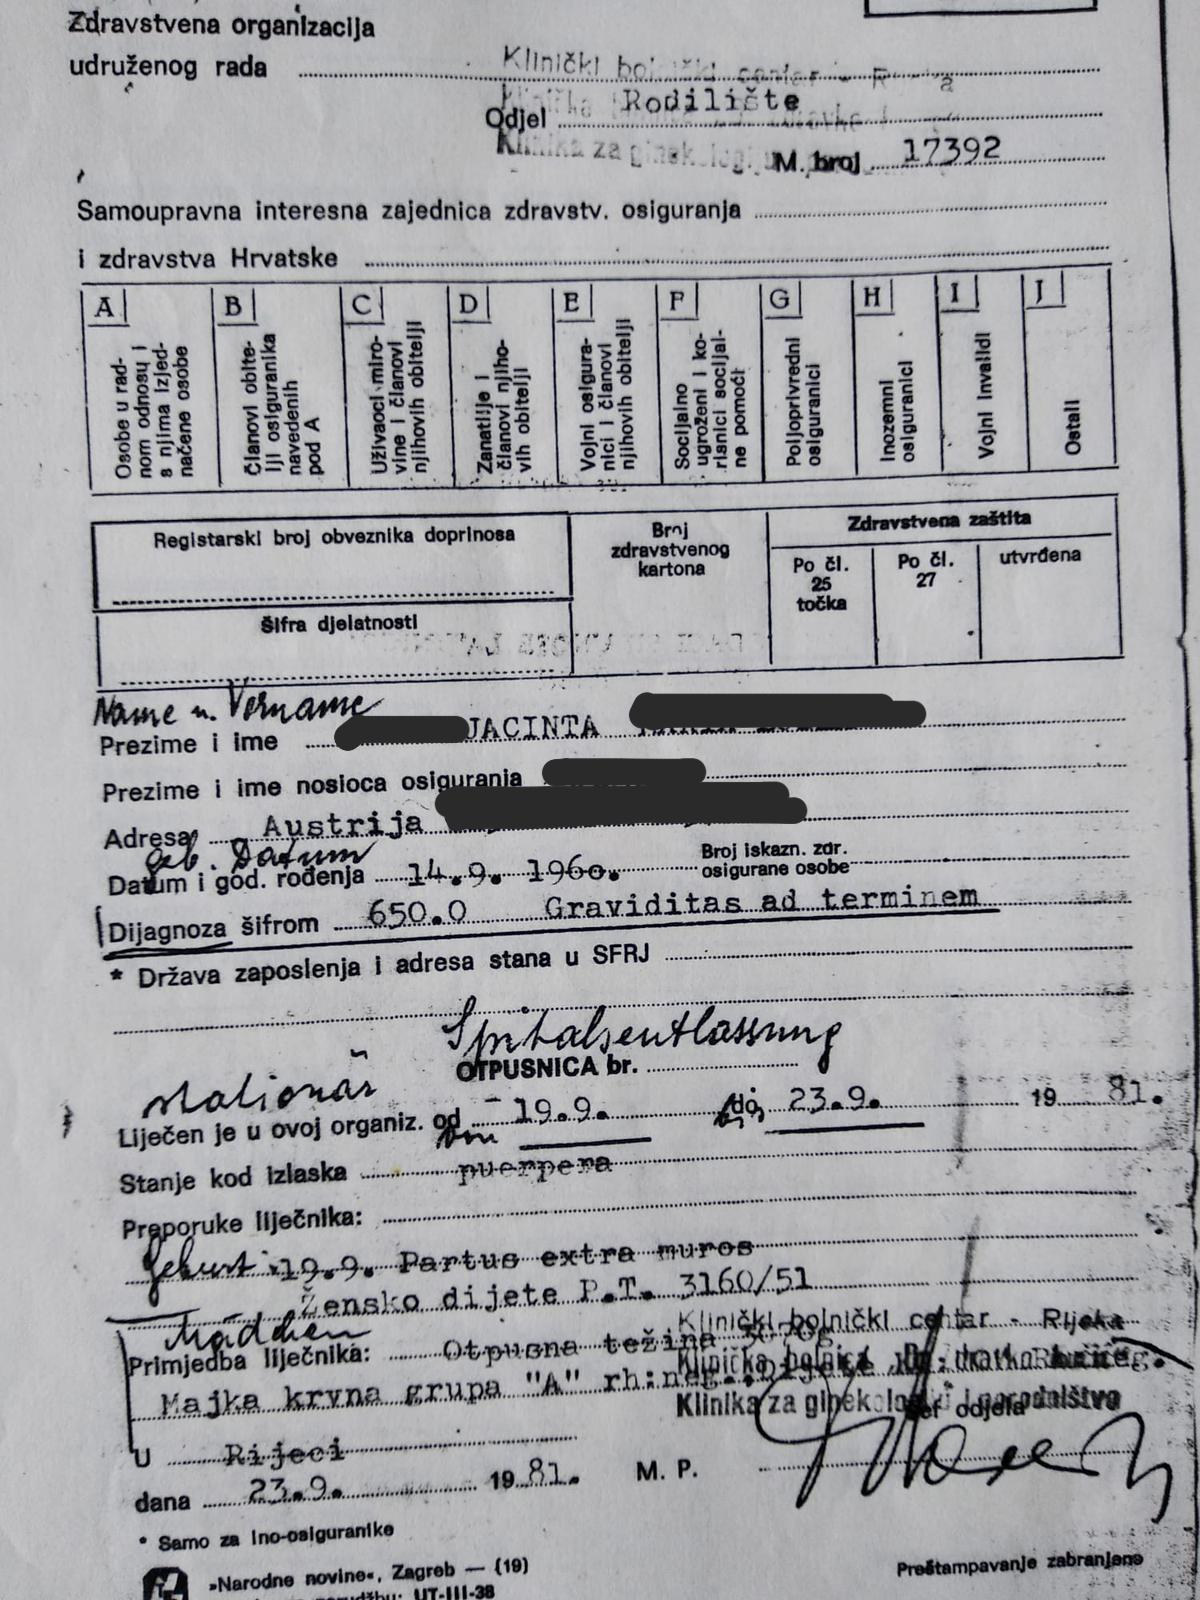 Zdravstvena organizacija
udruženog rada
Klinički bolnički centar - R
Odjel Rodilište
Klinika za ginekologiju
M. broj 17392
Samoupravna interesna zajednica zdravstv. osiguranja
i zdravstva Hrvatske
A B C D E F G H I J
Osobe u radnom odnosu i s njima izjednačene osobe
Članovi obitelji osiguranika navedenih pod A
Uživaoci mirovine i članovi njihovih obitelji
Zanatlije i članovi njihovih obitelji
Vojni osiguranici i članovi njihovih obitelji
Socijalno ugroženi i korisnici socijalne pomoći
Poljoprivredni osiguranici
Inozemni osiguranici
Vojni invalidi
Ostali
Registarski broj obveznika doprinosa
Broj
zdravstvenog
kartona
Zdravstvena zaštita
Po čl.
25
točka
Po čl.
27
utvrđena
Šifra djelatnosti
Name u. Vorname
Prezime i ime JACINTA
Prezime i ime nosioca osiguranja
Adresa Austrija
geb. Datum
Datum i god. rođenja 14.9. 1960.
Broj iskazn. zdr.
osigurane osobe
Dijagnoza šifrom 650.0 Graviditas ad terminem
* Država zaposlenja i adresa stana u SFRJ
Spitalsentlassung
OTPUSNICA br.
stationär
Liječen je u ovoj organiz. od 19.9. do 23.9. 19 81.
von bis
Stanje kod izlaska puerpera
Preporuke liječnika:
Geburt: 19.9. Partus extra muros
Žensko dijete P.T. 3160/51
Mädchen
Klinički bolnički centar - Rijeka
Primjedba liječnika: Otpusna težina
Majka krvna grupa "A" rh:neg.
Klinika za ginekologiju i porodništvo
Šef odjela
U Rijeci
dana 23.9. 19 81. M. P.
* Samo za ino-osiguranike
»Narodne novine«, Zagreb — (19)
UT-III-38
Preštampavanje zabranjeno